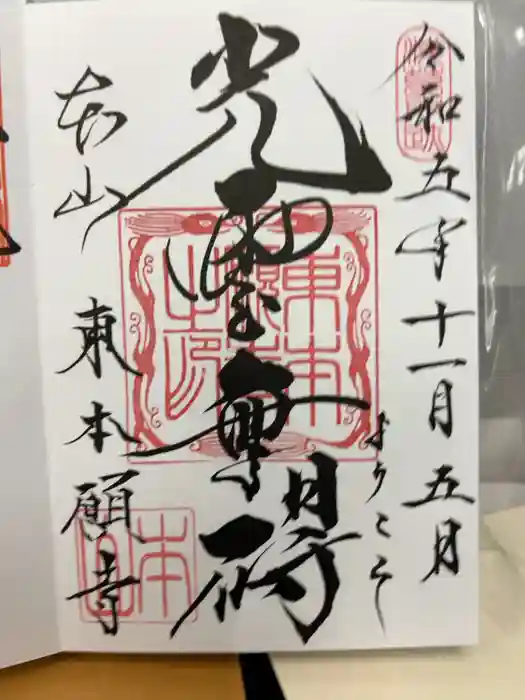 令和五年十一月五日
ようこそ
光雲無碍
本山 東本願寺
東本願寺之印